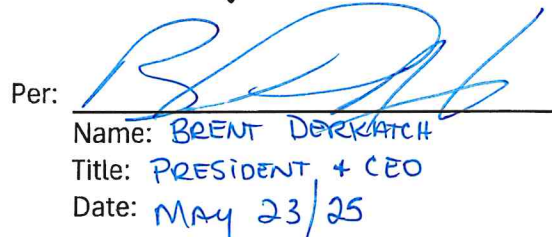 Per:
Name: BRENT DERKATCH
Title: PRESIDENT + CEO
Date: MAY 23/25